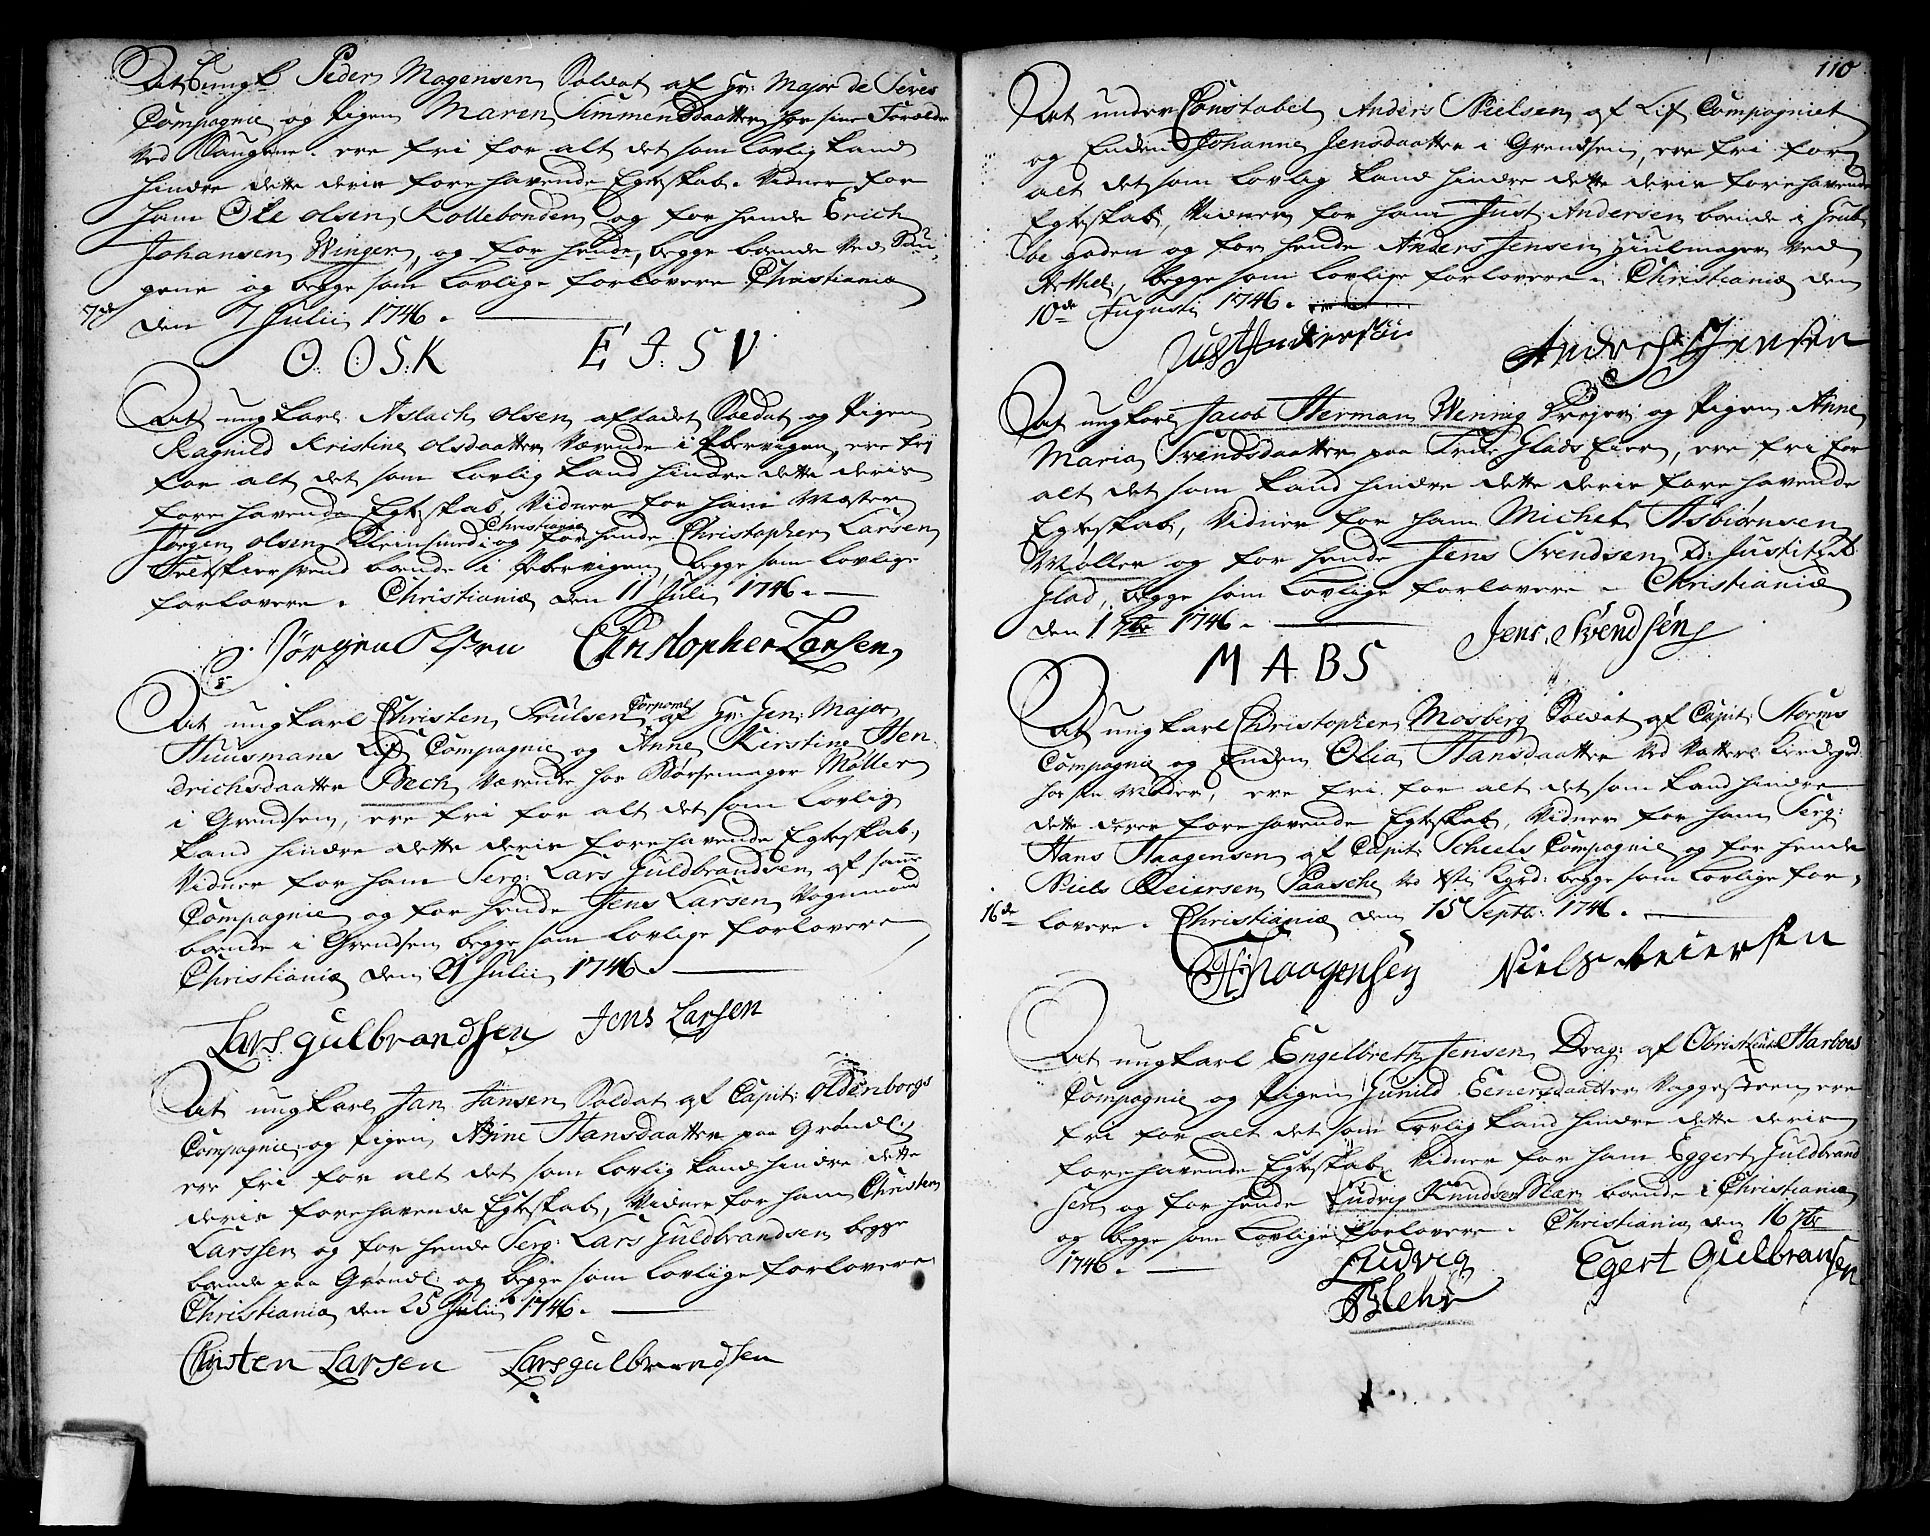 At ungk: Peder Mogensen Soldat af Hr: Major de Seues
Compagnie og Pigen Maren Simmensdaatter hos sine Forældre
ved Saugene. ere fri for alt det som lovlig kand
hindre dette deris forehavende Egteskab. Vidner for
ham Ole Olsen Kollebonden og for hende Erich
Johansen Winger, og for hende, begge boende ved Sau-
gene og begge som lovlige forlovere Christiania
7de den 7 Julii 1746.
O: O S: K E J: S V
At ungkarl Aslach Olsen aftadet Soldat og Pigen
Ragnild Kristine Olsdaatter værende i Pebervigen, ere fri
for alt det som lovlig kand hindre dette deris
fore havende Egteskab, Vidner for ham Mester
Christiania
Jørgen Olsen Kleinsmed i og for hende Christopher Larsen
Feldskiersvend boende i Pebervigen begge som lovlige
forlovere. Christianiæ den 11 Julii 1746.
Jørgen Olsen Christopher Larsen
Corporal
At ungkarl Christen Trulsen af Hr: Gen: Major
Huusmans Lif Compagnie og Anne Kirstine Hen-
drichsdaatter Bech værende hos Børsemager Møller
i Grendsen, ere fri for alt det som lovlig
kand hindre dette deris forehavende Egteskab,
Vidner for ham Serg: Lars Guldbrandsen af samme
Compagnie og for hende Jens Larsen Vognmand
boende i Grendsen begge som lovlige forlovere
Christianiæ den 21 Julii 1746.
Lars gulbrandsen Jens Larsen
At ungkarl Jan Jansen Soldat af Capit: Oldenborgs
Compagnie og Pigen Ahne Hansdaatter paa Grøndl:
ere fri for alt det som lovlig kand hindre dette
deris forehavende Egteskab, Vidner for ham Christen
Larssen og for hende Serg: Lars Guldbrandsen begge
boende paa Grøndl: og begge som lovlige forlovere
Christianiæ den 25 Julii 1746.
Christen Larsen Lars gulbrandsen
110
At under Constabel Anders Nielsen af Lif Compagniet
og Enden Johanne Jensdaatter i Grendsen, ere fri for
alt det som lovlig kand hindre dette deris forehavende
Egteskab, Vidner for ham Just Andersen boende i Grub-
be gaden og for hende Anders Jensen Hiulmager ved
begge som lovlige forlovere Christianiæ den
10de Augusti 1746.
Just Andersen Andres Jensen
At ungkarl Jacob Herman Wennig Drejer og Pigen Anne
Maria Svendsdaatter paa Glads Eier, ere fri for
alt det som kand hindre dette deris fore havende
Egteskab, Vidner for ham Michel Asbiørnsen
Møller og for hende Jens Svendsen D: Justitzrd
Glad, begge som lovlige forlovere Christianiæ
den 1 7br 1746.
M A B S Jens Svendsen
At ungkarl Christopher Mosberg Soldat af Capit: Storms
Compagnie og Enden Olia Hansdaatter ved Vatters Kirdegrd
hos sin Moder, ere fri for alt det som kand hindre
dette deres forehavende Egteskab, Vidner for ham Serg:
Hans Haagensen af Capit: Scheels Compagnie og for hende
Niels Reiersen Paasche ved begge som lovlige for-
16de lovere. Christianiæ den 15 Septb: 1746.
H Haagensen Niels Reiersen
At ungkarl Engelbreth Jensen Drag: af Obristleut: Harboes
Compagnie og Pigen Gunild Eenersdaatter Vaggesteen, ere
fri for alt det som lovlig kand hindre dette deris
forehavende Egteskab, Vidner for ham Eggert Guldbrand-
sen og for hende Ludvig Knudsen Blær boende i Christiania
og begge som lovlige forlovere. Christiania den 16 7br
1746.
Ludvig Egert Gulbransen
Blehr